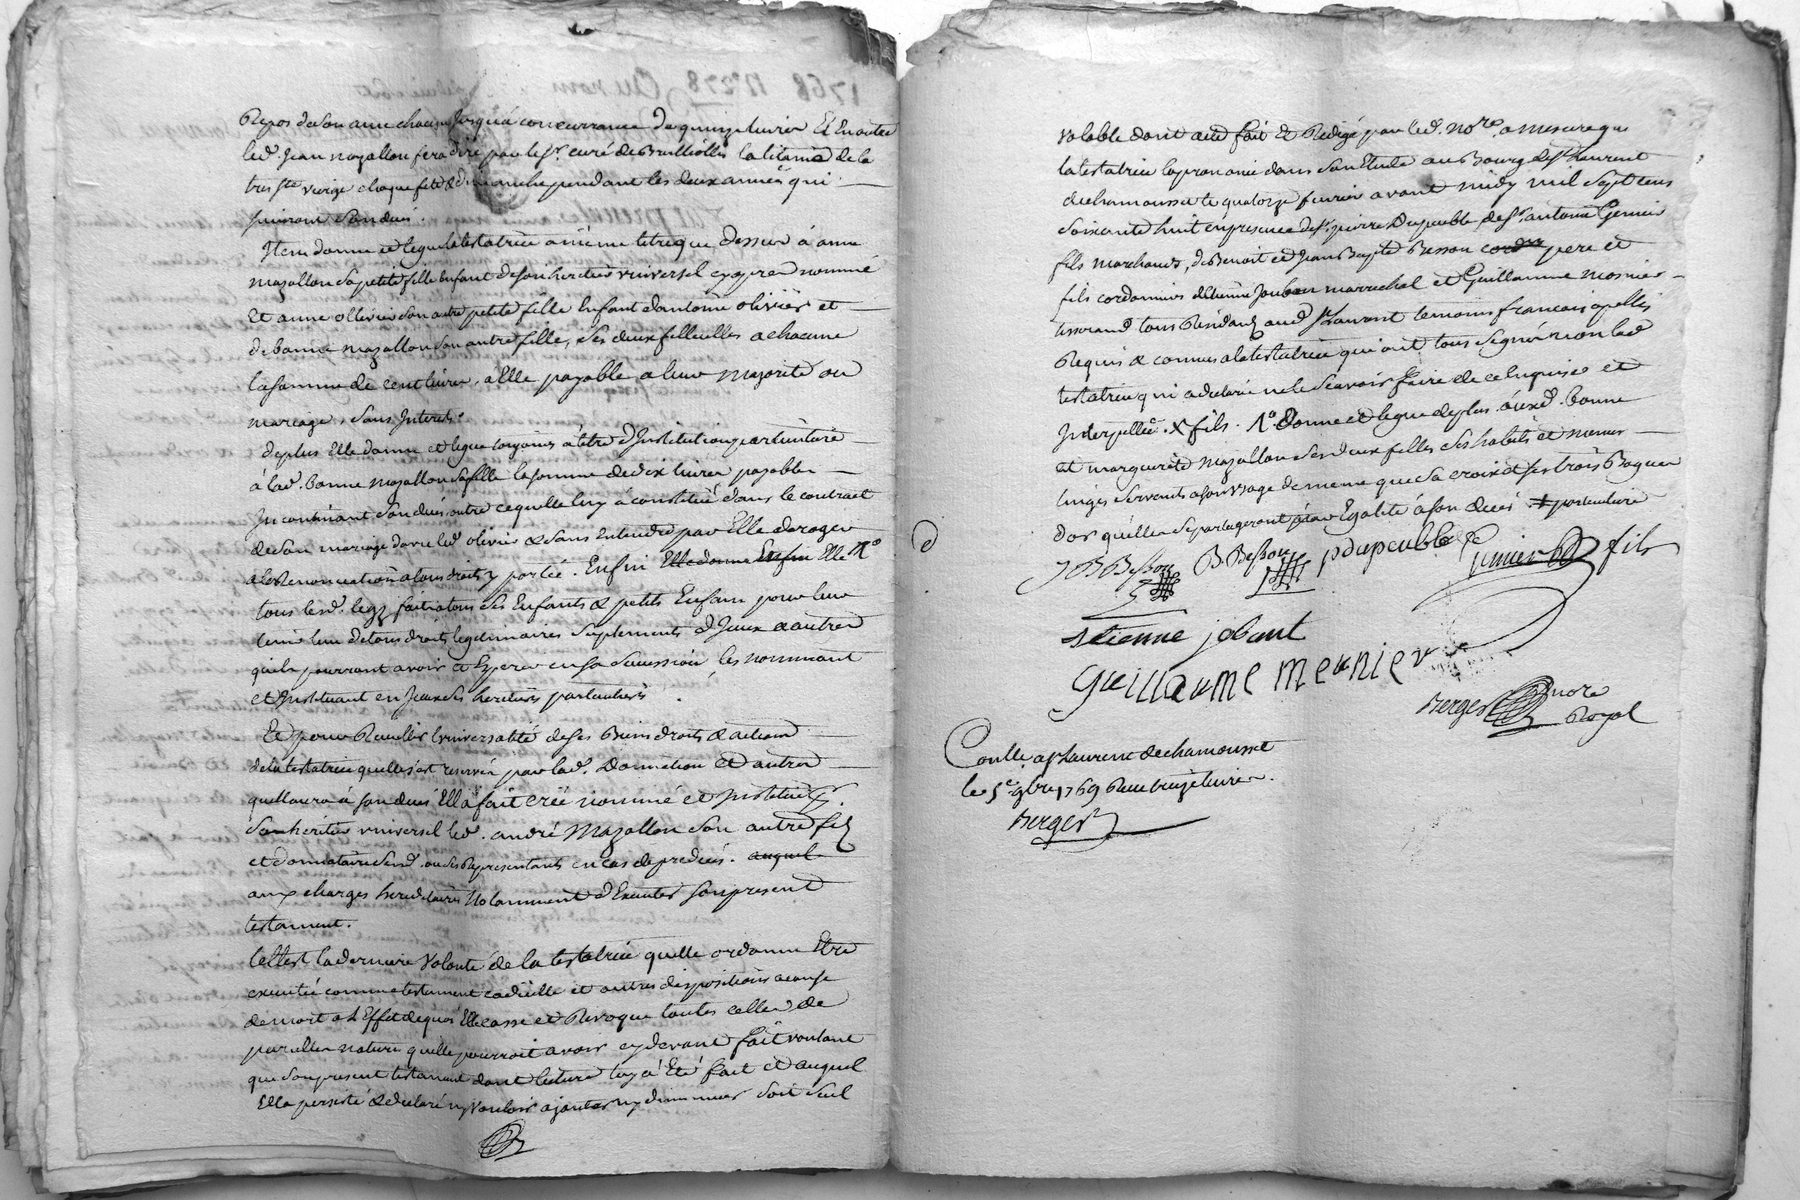 Repos de son ame chacune jusqu'à concurrance de quinze livres Et En outre
led. Jean mazallon fera diré par le Sr. curé de Brulliolles la litanie de la
tres Ste vierge chaque fete & dimanche pendant les deux années qui
suivront son deces.
Item donne et legue la testatrice a meme titre que dessus à anne
mazallon sa petite fille Enfant de son heritier universel cy apres nommé
Et anne ollivier son autre petite fille Enfant d'antoine olivier et
de banne mazallon son autre fille, ses deux fillieulles a chacune
la somme de cent livres, a Elle payable a leur majorité ou
mariage, sans Interets.
de plus Elle donne et legue toujours à titre d'Institution particuliere
à lad. banne mazallon sa fille la somme de dix livres payables
Incontinant son deces outre ce quelle luy a constitué dans le contract
de son mariage avec led. olivier & sans Entendre par Elle deroger
a la Renonciation a tous droits y portée. Enfin Elle donne Enfin Elle 1°
tous lesd. legz faits a tous ses Enfants & petits Enfans pour leur
tenir lieu de tous droits legitimaires suplements d'Iceux & autres
quils pourront avoir et Esperer en sa succession les nommant
et Instituant en Iceux ses heritiers particuliers
Et pour Recullir luniversalité de ses Biens droits & actions
de la testatrice quelle s'est reservée par lad. donnation et autres
quelle aura à son deces Ella a fait créé nommé et Institué
son heritier universel led. andré Mazallon son autre fils
et donnataire susd. ou ses Representants en cas de predeces. auquel
aux charges hereditaires Notamment d'Executer son present
testament.
Cest Est la derniere volonte de la testatrice quelle ordonne Etre
executée comme testament codicille et autres dispositions a cause
de mort a l'Effet de quoi Elle casse et Revoque toutes celles de
pareilles natures quelle pourroit avoir cy devant fait voulant
que son present testament dont lecture luy a Eté fait et auquel
Ella persisté & declaré ny vouloir ajouter ny diminuer soit seul
valable dont acte fait Et Redigé par led. nore. a mesure que
la testatrice la prononcé dans son Etude au Bourg de St Laurent
de chamousset le quatorze fevrier avant midy mil sept cens
soixante huit en presence de Sr. pierre Dupeuble, de Sr. antoine Grenier
fils marchands, de Benoit et Jean Baptiste Besson cordon pere et
fils cordonniers d'Etienne Jouban marrechal et Guillaume mosnier
tisserand tous Residants aud. St Laurent temoins francais apellés
Requis & connus a la testatrice qui ont tous signé non lad.
testatrice qui a declaré ne le scavoir faire de ce Enquise et
Interpellée. X fils. 1° donne et legue de plus aux d. banne
et marguerite mazallon ses deux filles ses habits et menus
linges servants a son usage de meme que sa croix & ses trois Bagues
dor quelles se partageront par Egalité à son deces + particuliere
J B Besson B. Besson p dupeuble grenier fils
etienne jobant
guillaume meunier
Berger nore
Royal
Conllé a St Laurent de chamousset
le 5e. 9bre 1769 Reçu treize livres.
Berger